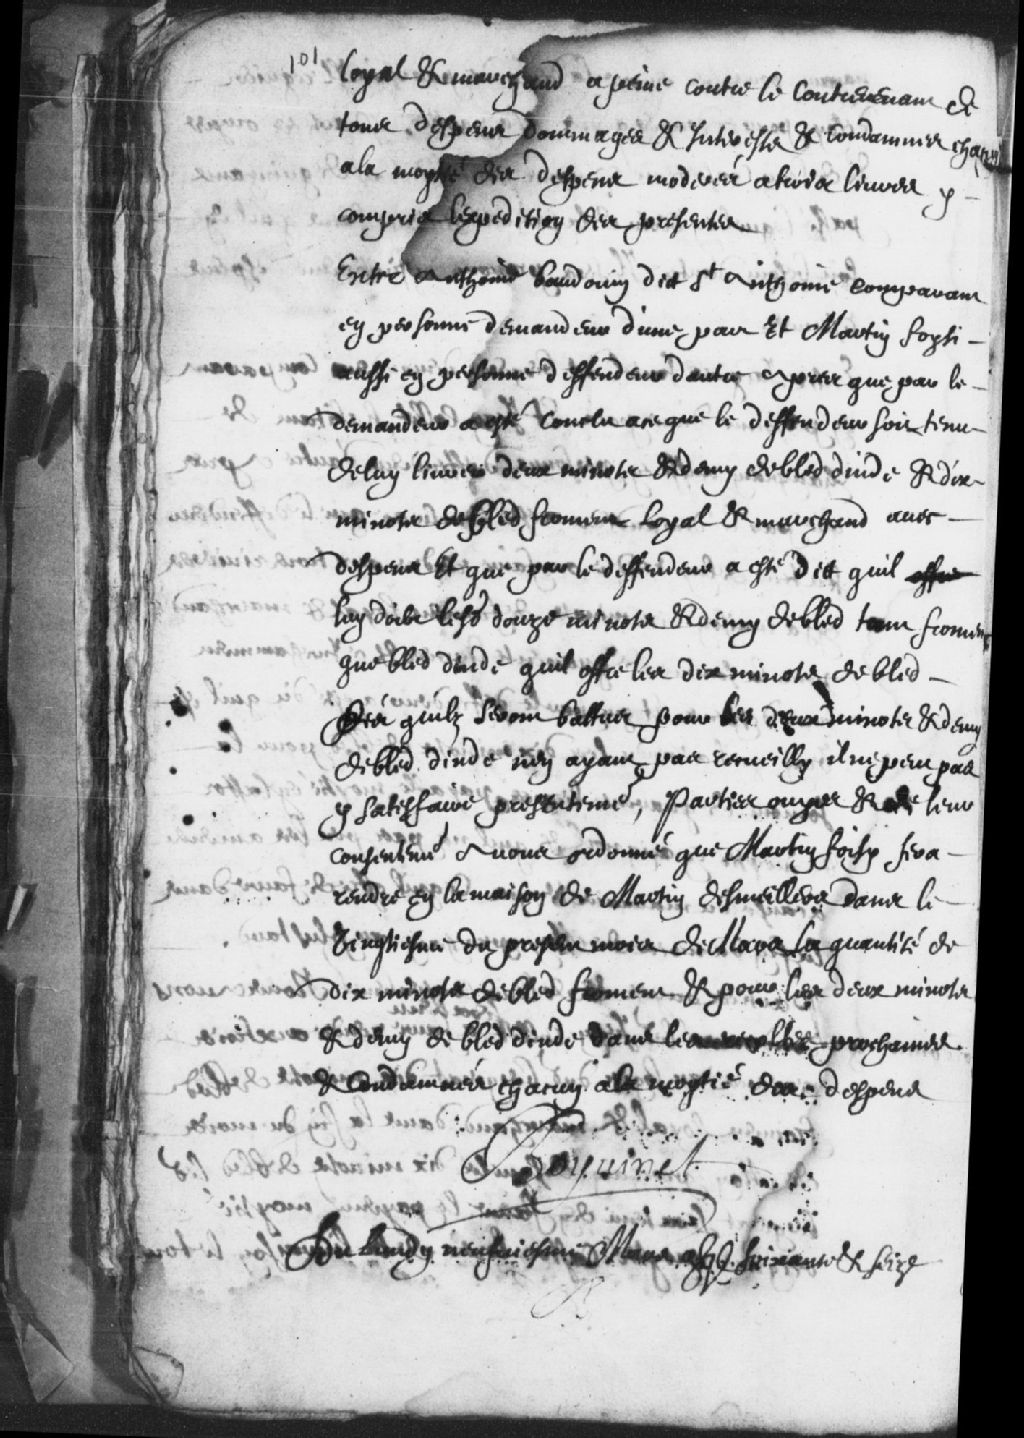 101
loyal & marchand a peine contre le Contrevenant de
tous despens dommages & Interests & Condamnes chacun
ala moytié des despens moderés atrois livres y
compris lexpedition des presentes
Entre Anthoine baudouin dit St Anthoine comparant
en personne demandeur dune part Et Martin foysi
aussi en personne deffendeur dautre Apres que par le
demandeur a esté Conclu aceque le deffendeur soit tenu
deluy livrer deux minots & demy debled dinde & dix
minots debled froment loyal & marchand avec
despens Et que par le deffendeur a esté dit quil offre
luy doibt lesd douze minots & demy debled tant froment
que bled dinde quil offre les dix minots debled
Dés quilz seront battus pour les deux minots & demy
debled dinde nen ayant pas recueilly il ne peut pas
y satisfaire presentemt, Parties ouyes & de leur
consentemt Avons ordonné que Martin foisy fera
rendre en la maison de Martin desmeilleurs dans le
Vingtiesme du present mois de Mars la quantité de
dix minots debled froment & pour les deux minots
& demy de bled dinde dans les prochaines
& Condamnés chacun ala moytié des despens
Du lundy neufviesme Mars gbjC soixante & seize